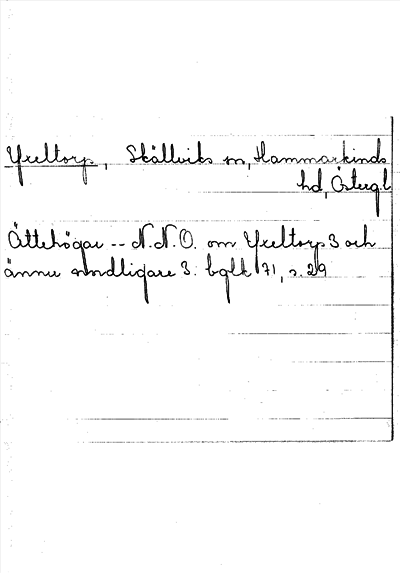 Yxeltorp, Skällviks sn, Hammarkinds
hd, Östergl
Ättehögar -- N.N.O. om Yxeltorp 3 och
ännu nordligare 3. bglk 71, s. 29